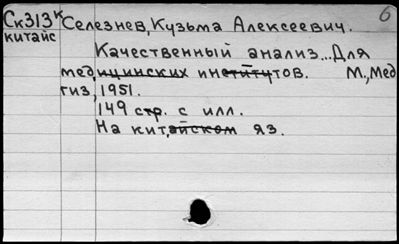 6
Ск313к Селезнев, Кузьма Алексеевич.
китайс
Качественный анализ...Для
медицинских институтов. М., Мед
гиз, 1951.
149 стр. с илл.
На китайском яз.